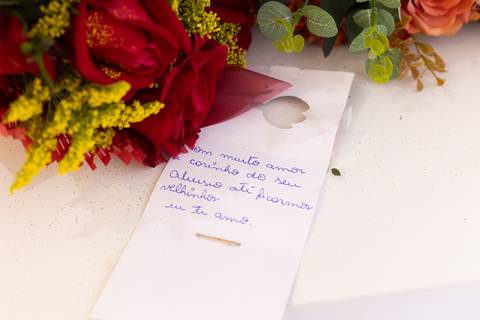 om muito amor
e carinho do seu
Aluisio até ficarmos
velhinhos
eu te amo.